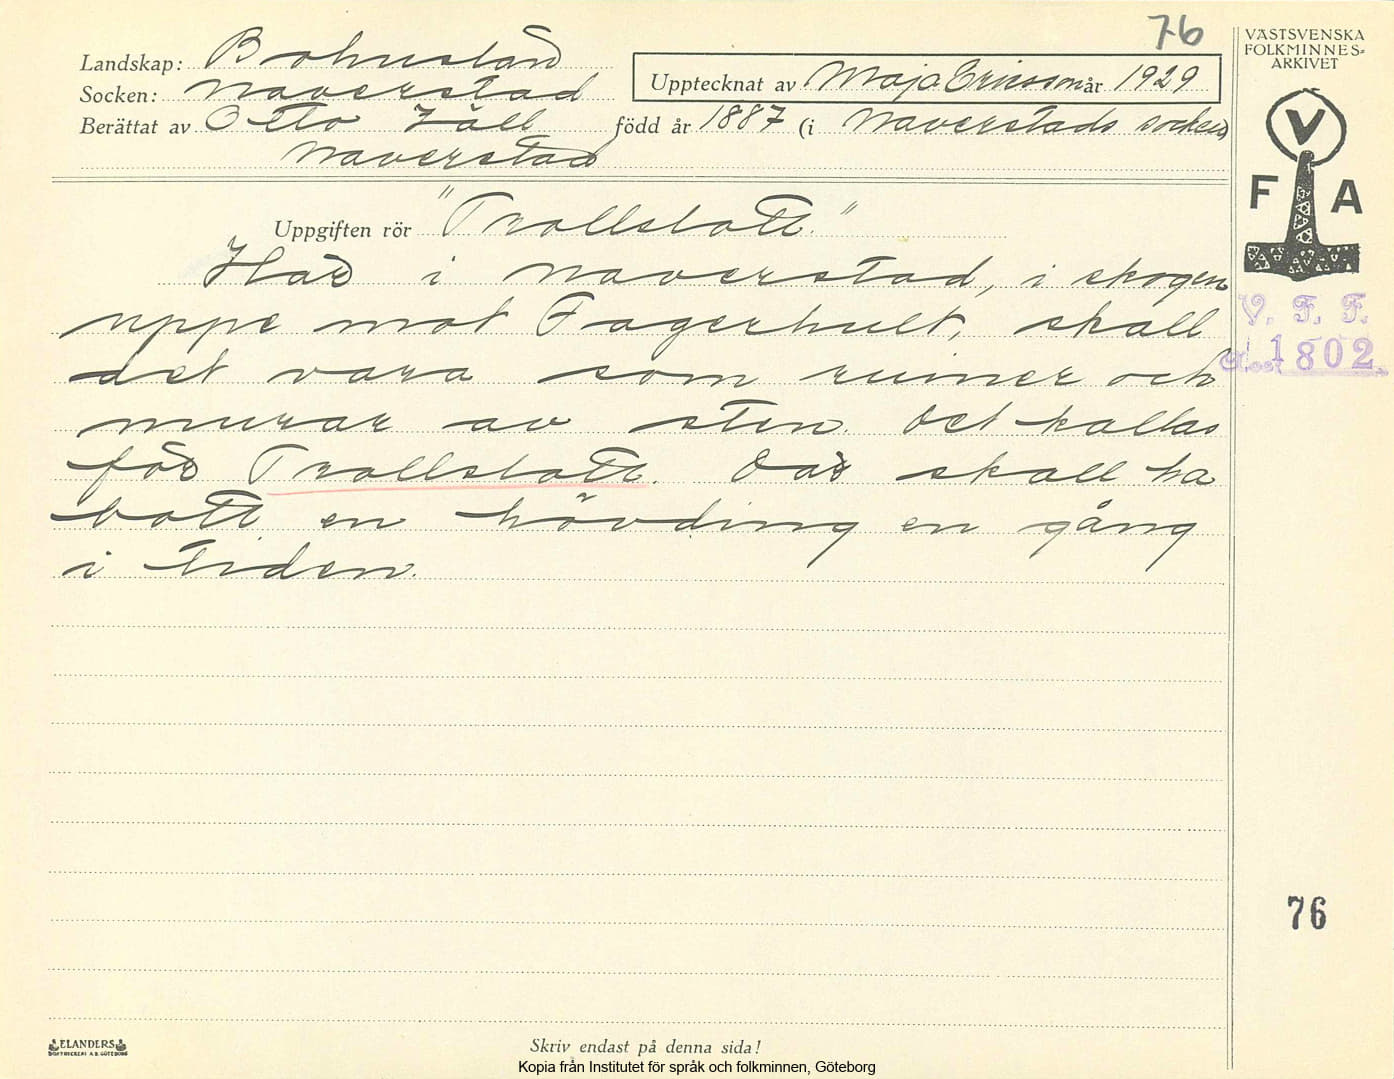 76
Landskap: Bohuslän
Socken: Naverstad
Upptecknat av Maja Ericsson år 1929
Berättat av Otto Zäll född år 1887 (i Naverstads socken)
Naverstad
Uppgiften rör "Trollslott."
Här i Naverstad, i skogen
uppe mot Fagerhult, skall
det vara som ruiner och
murar av sten. Det kallas
för Trollslott. Där skall ha
bott en hövding en gång
i tiden.
VÄSTSVENSKA
FOLKMINNES-
ARKIVET
V
F A
V. F. F.
1802.
76
ELANDERS
BOKTRYCKERI A.B. GÖTEBORG
Skriv endast på denna sida!
Kopia från Institutet för språk och folkminnen, Göteborg